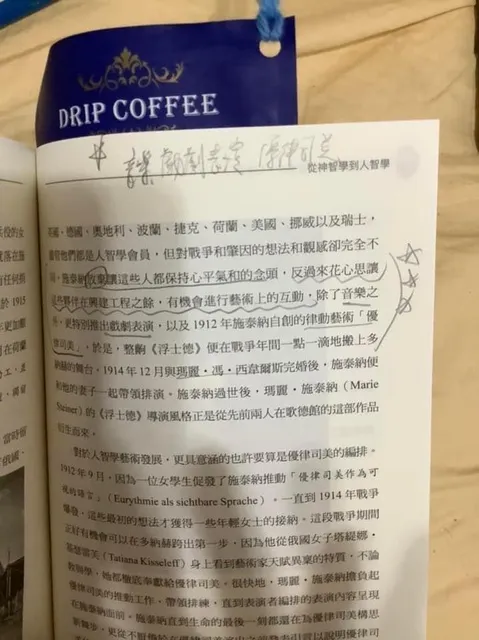 DRIP COFFEE
音樂 戲劇表演 優律司美
從神智學到人智學
英國、德國、奧地利、波蘭、捷克、荷蘭、美國、挪威以及瑞士,
儘管他們都是人智學會員,但對戰爭和肇因的想法和觀感卻完全不
同。施泰納放棄讓這些人都保持心平氣和的念頭,反過來花心思讓
這些夥伴在興建工程之餘,有機會進行藝術上的互動,除了音樂之
外,更特別推出戲劇表演,以及1912年施泰納自創的律動藝術「優
律司美」,於是,整齣《浮士德》便在戰爭年間一點一滴地搬上多
納赫的舞台。1914年12月與瑪麗・馮・西韋爾斯完婚後,施泰納便
和他的妻子一起帶領排演,施泰納過世後,瑪麗・施泰納(Marie
Steiner)的《浮士德》導演風格正是從先前兩人在歌德館的這部作品
衍生而來。
對於人智學藝術發展,更具意涵的也許要算是優律司美的編排。
1912年9月,因為一位女學生促發了施泰納推動「優律司美作為可
視的語言」(Eurythmie als sichtbare Sprache)。一直到1914年戰爭
爆發,這些最初的想法才獲得一些年輕女士的接納。這段戰爭期間
正好有機會可以在多納赫跨出第一步,因為他從俄國女子塔緹娜・
基瑟雷芙(Tatiana Kisseleff)身上看到藝術家天賦異稟的特質,不論
教師學,她都徹底奉獻給優律司美。很快地,瑪麗・施泰納擔負起
優律司美的推動工作,帶領排練,直到表演者編排的表演內容呈現
在施泰納面前。施泰納直到生命的最後一刻都還在為優律司美構思
兵役的女
或落在施
有任何損
於1915
年更加艱
到荷蘭
當時個
俄國、